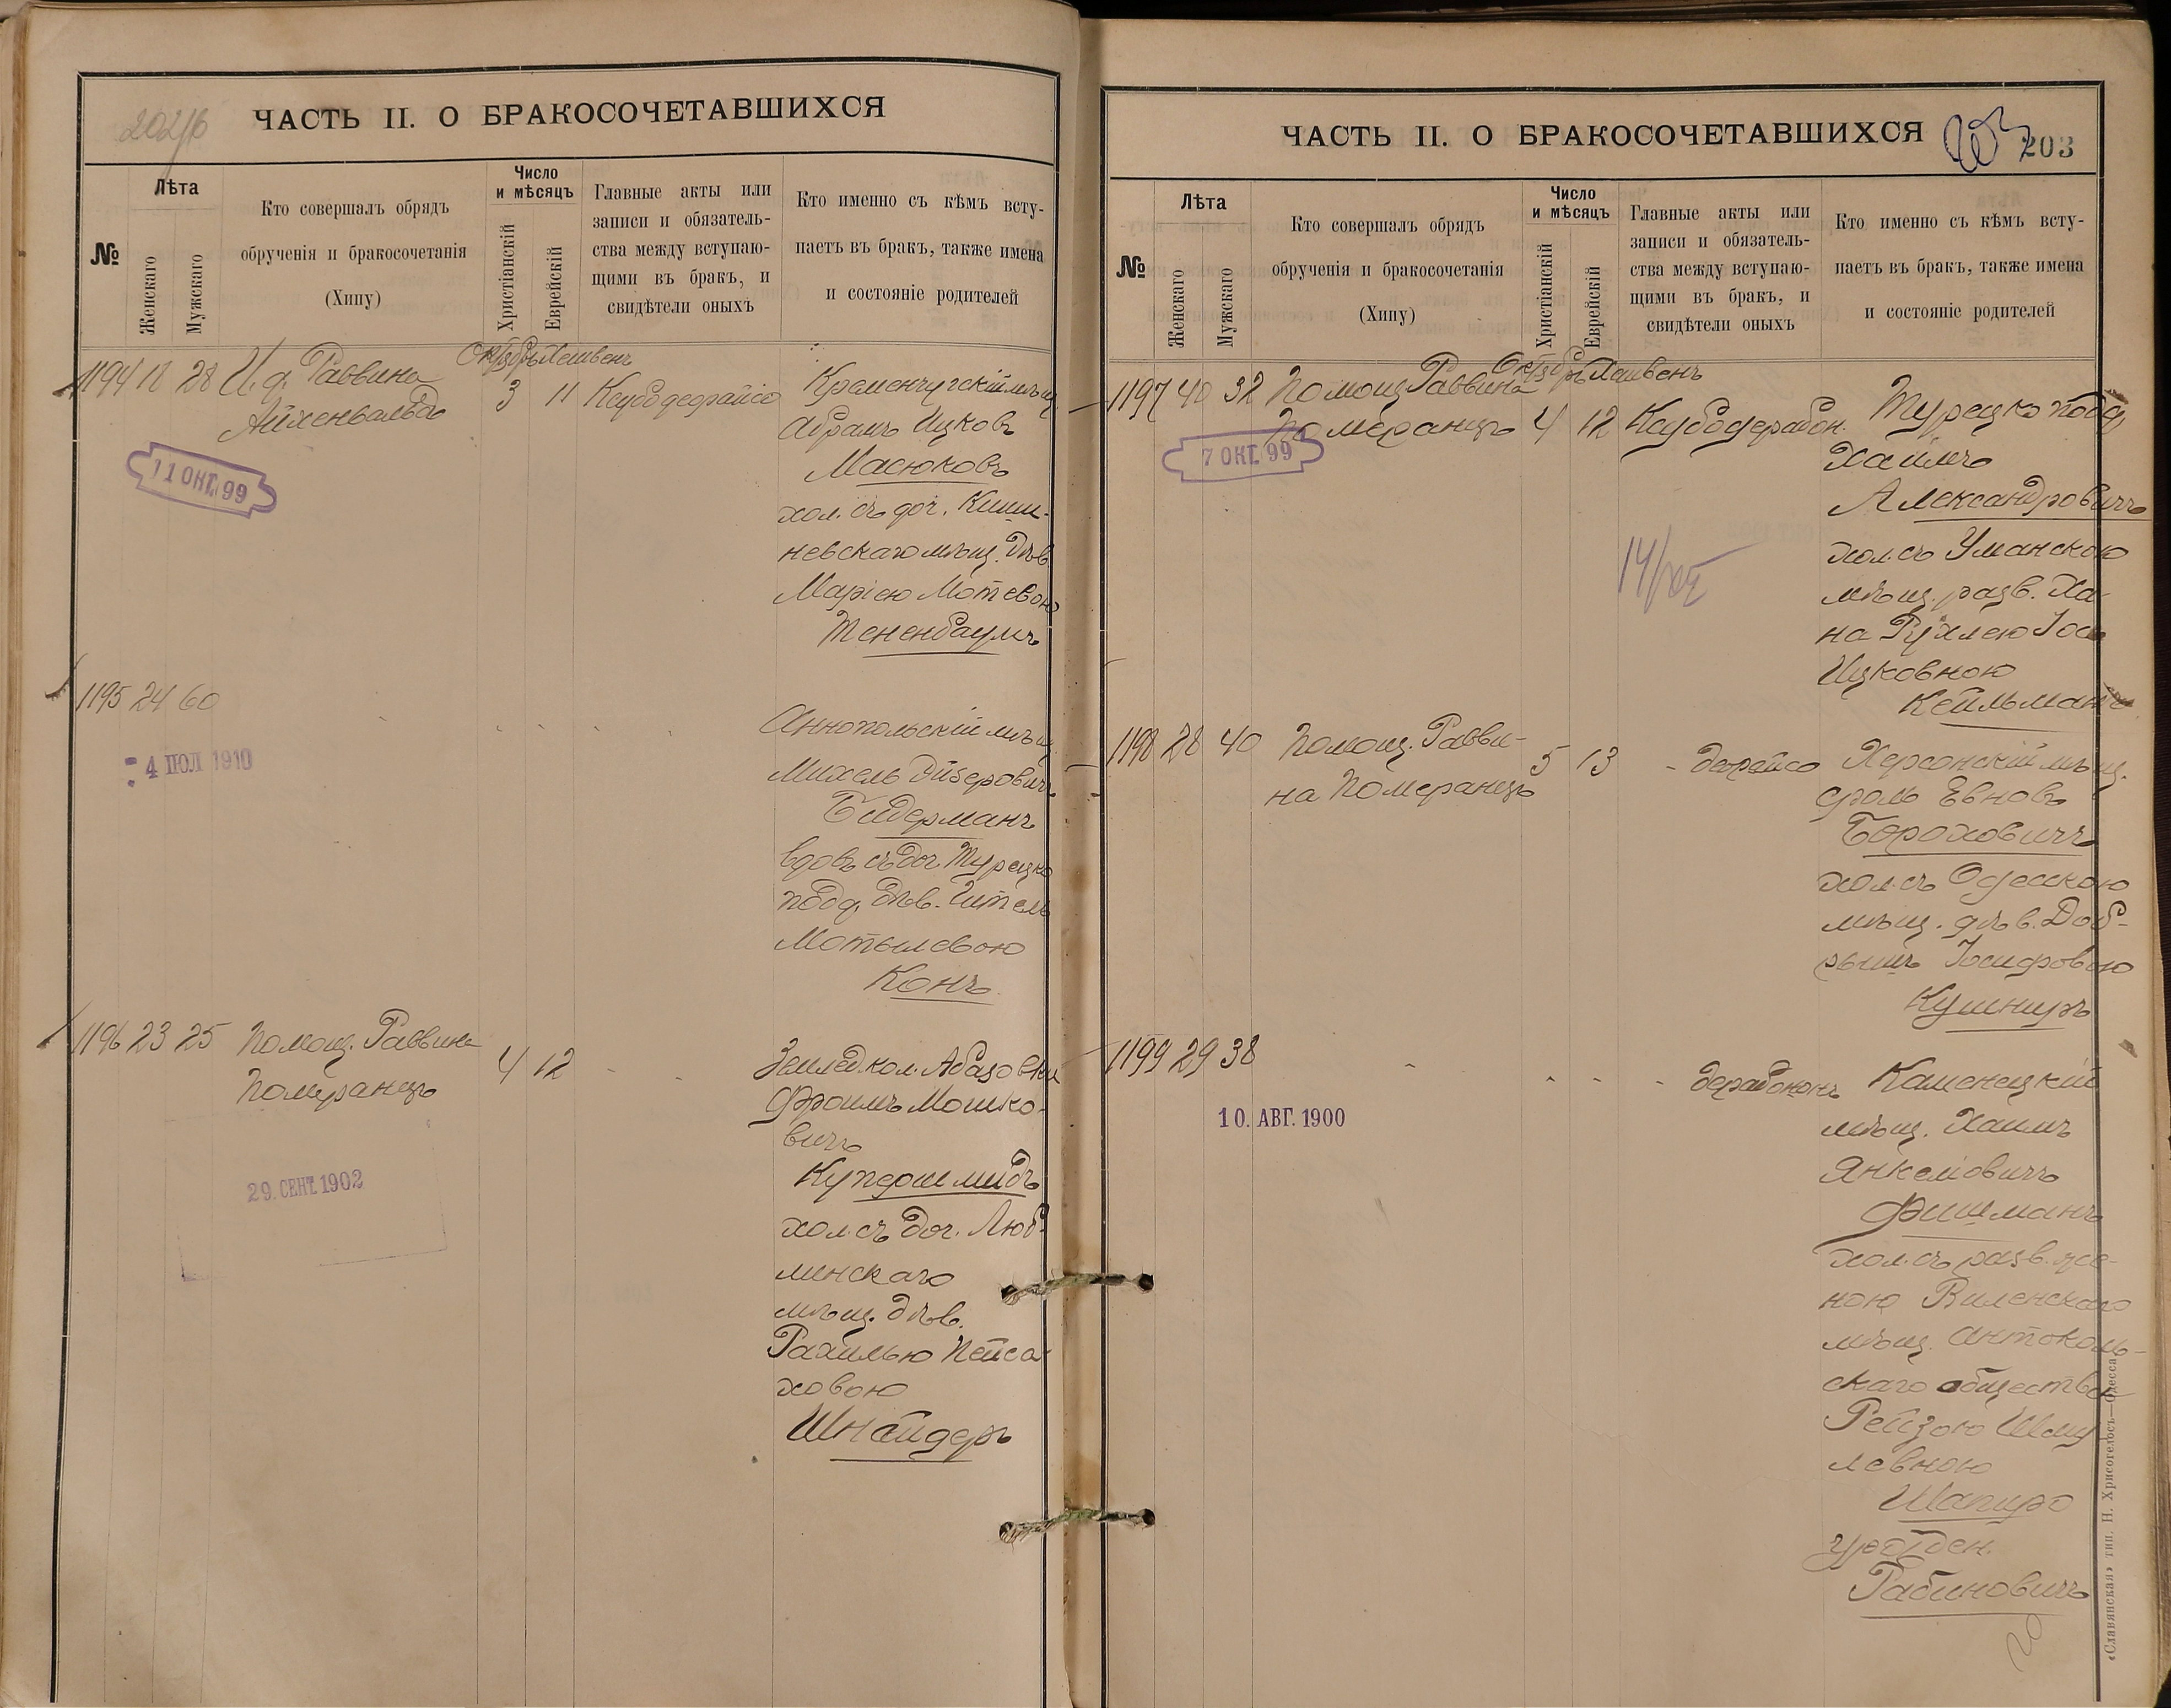 202/б
ЧАСТЬ II. О БРАКОСОЧЕТАВШИХСЯ
№
Лѣта
Женскаго
Мужскаго
Кто совершалъ обрядъ
обрученія и бракосочетанія
(Хипу)
Число
и мѣсяцъ
Христіанскій
Еврейскій
Главные акты или
записи и обязатель-
ства между вступаю-
щими въ бракъ, и
свидѣтели оныхъ
Кто именно съ кѣмъ всту-
паетъ въ бракъ, также имена
и состояніе родителей
Октябрь Хешвенъ
1194 18 28 И. д. Раввина
Айхенвальдъ
3 11
Кременчугскій мѣщ
Абрамъ Ицковъ
Масюковъ
хол. съ доч. Киши-
невскаго мѣщ. дѣв.
Маріею Мотевою
Тененбаумъ
11 ОКТ. 99
1195 24 60
Аннопольскій мѣщ
Михель
Бидерманъ
вдов. съ доч. Турецко
подд. дѣв.
Мотылевою
Конъ
4 ІЮЛ 1910
1196 23 25 Помощ. Раввина
Померанцъ
4 12
Землед. кол. Абазовки
Фроимъ Мошко-
вичъ
Купершмидъ
хол. съ доч. Люб-
линскаго
мѣщ. дѣв.
Рахилью Пейса-
ховою
Шнайдеръ
29. СЕНТ. 1902
ЧАСТЬ II. О БРАКОСОЧЕТАВШИХСЯ
203
203
№
Лѣта
Женскаго
Мужскаго
Кто совершалъ обрядъ
обрученія и бракосочетанія
(Хипу)
Число
и мѣсяцъ
Христіанскій
Еврейскій
Главные акты или
записи и обязатель-
ства между вступаю-
щими въ бракъ, и
свидѣтели оныхъ
Кто именно съ кѣмъ всту-
паетъ въ бракъ, также имена
и состояніе родителей
Октябрь Хешвенъ
1197 40 32 Помощ. Раввина
Померанцъ
4 12
Турецко подд.
Хаимъ
Александровичъ
хол. съ Уманскою
мѣщ. разв. Ха-
на Рухлею Іось
Ицковною
Кейльманъ
7 ОКТ. 99
1198 28 40 Помощ. Равви-
на Померанцъ
5 13
Херсонскій мѣщ.
Сроль Евновъ
Бороховичъ
хол. съ Одесскою
мѣщ. дѣв. Доб-
рышъ Іосифовою
Кушниръ
1199 29 38
Каменецкій
мѣщ. Хаимъ
Янкелiовичъ
Фишманъ
хол. съ разв. же-
ною Виленскаго
мѣщ. Антоколь-
скаго общества
Рейзою Шму
левною
Шапиро
урожден.
Рабиновичъ
10. АВГ. 1900
«Славянская» тип. Н. Хрисогелосъ—Одесса.